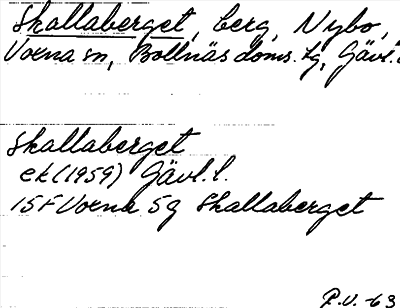 Skallaberget, berg, Nybo,
Voxna sn, Bollnäs doms. tg, Gävl. l.
Skallaberget
ek (1959) Gävl. l.
15F Voxna 5g Skallaberget
P.V. -63